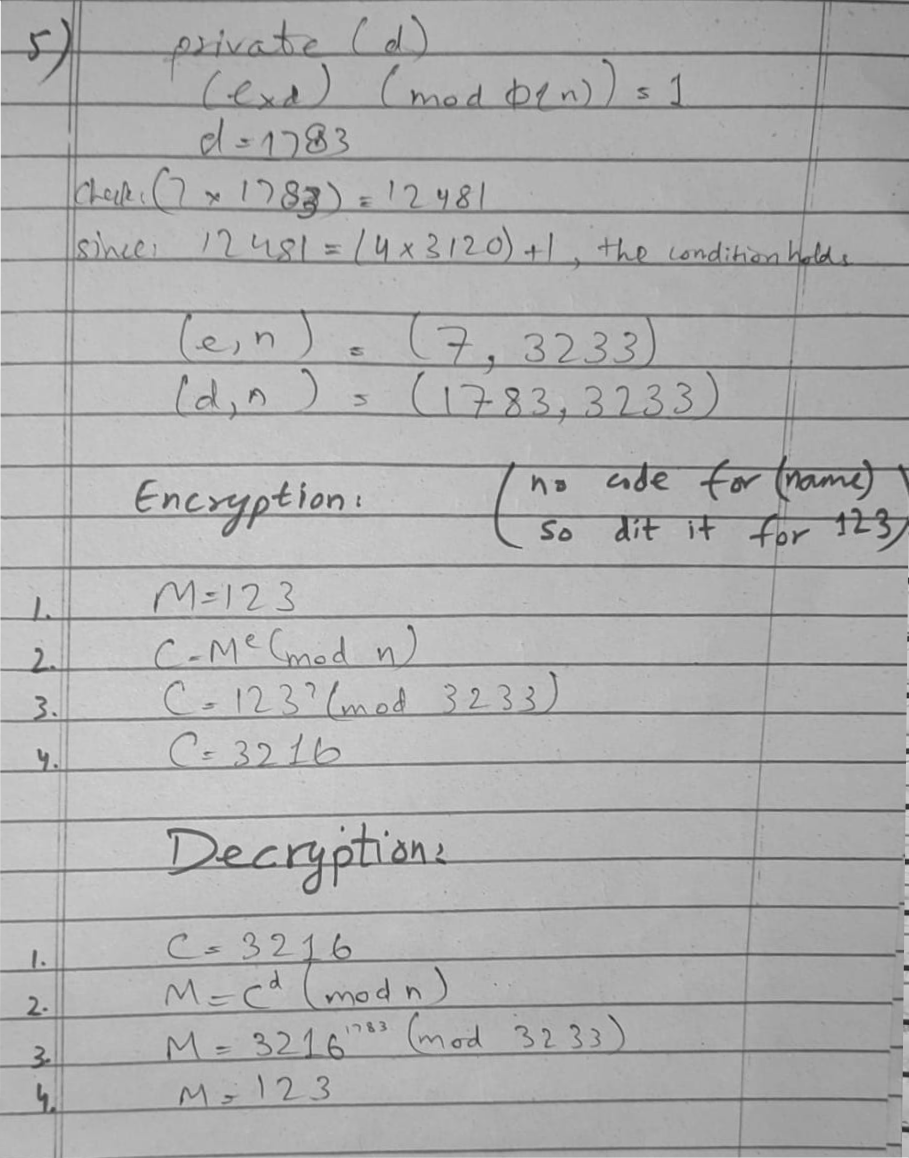 5) private (d)
(exd) (mod φ(n)) = 1
d = 1783
Check: (7 × 1783) = 12481
since: 12481 = (4 × 3120) + 1, the condition holds
(e, n) = (7, 3233)
(d, n) = (1783, 3233)
Encryption: (no code for (name)
so dit it for 123)
1. M = 123
2. C = Mᵉ (mod n)
3. C = 123⁷ (mod 3233)
4. C = 3216
Decryption:
1. C = 3216
2. M = Cᵈ (mod n)
3. M = 3216¹⁷⁸³ (mod 3233)
4. M = 123